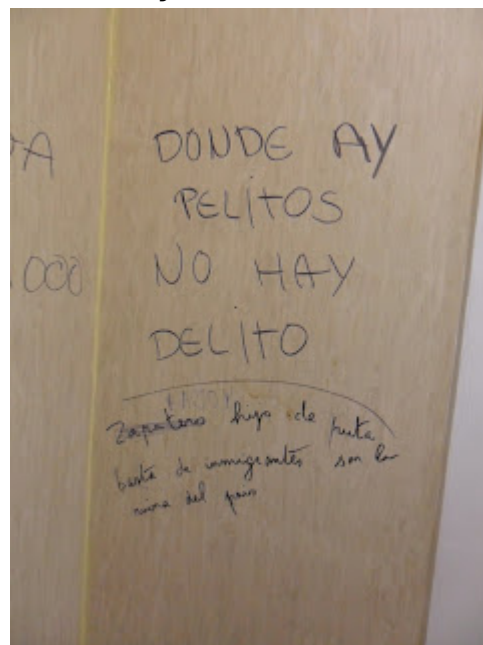 TA
DONDE AY
PELITOS
.000
NO HAY
DELITO
Zapatero hijo de puta
basta de inmigrantes son la
ruina del pais